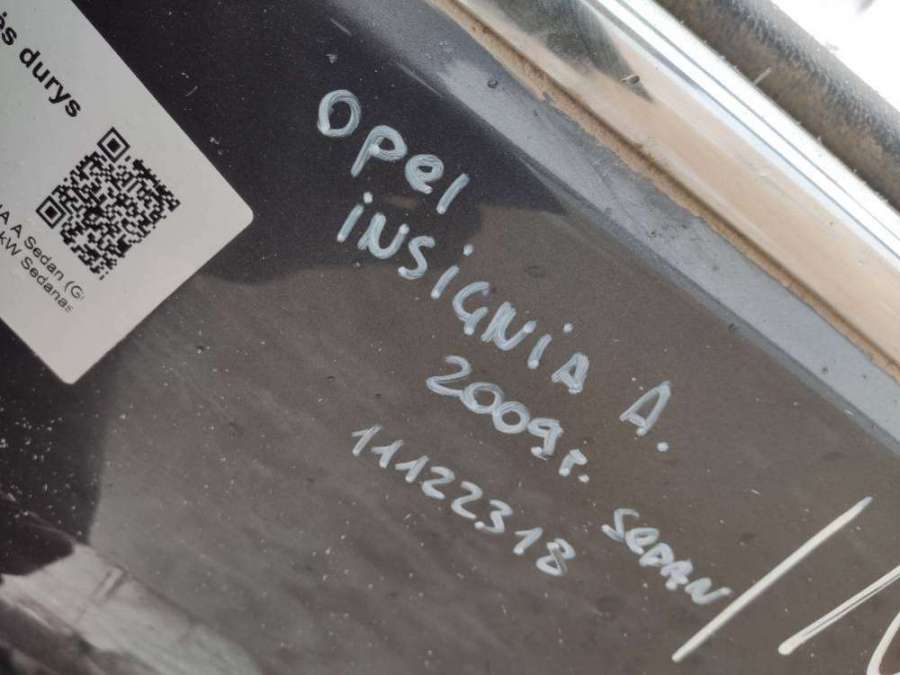 ės durys
A A Sedan (G
kW Sedanas
Opel
iNSiGNiA A.
2009r. SEDAN
11122318